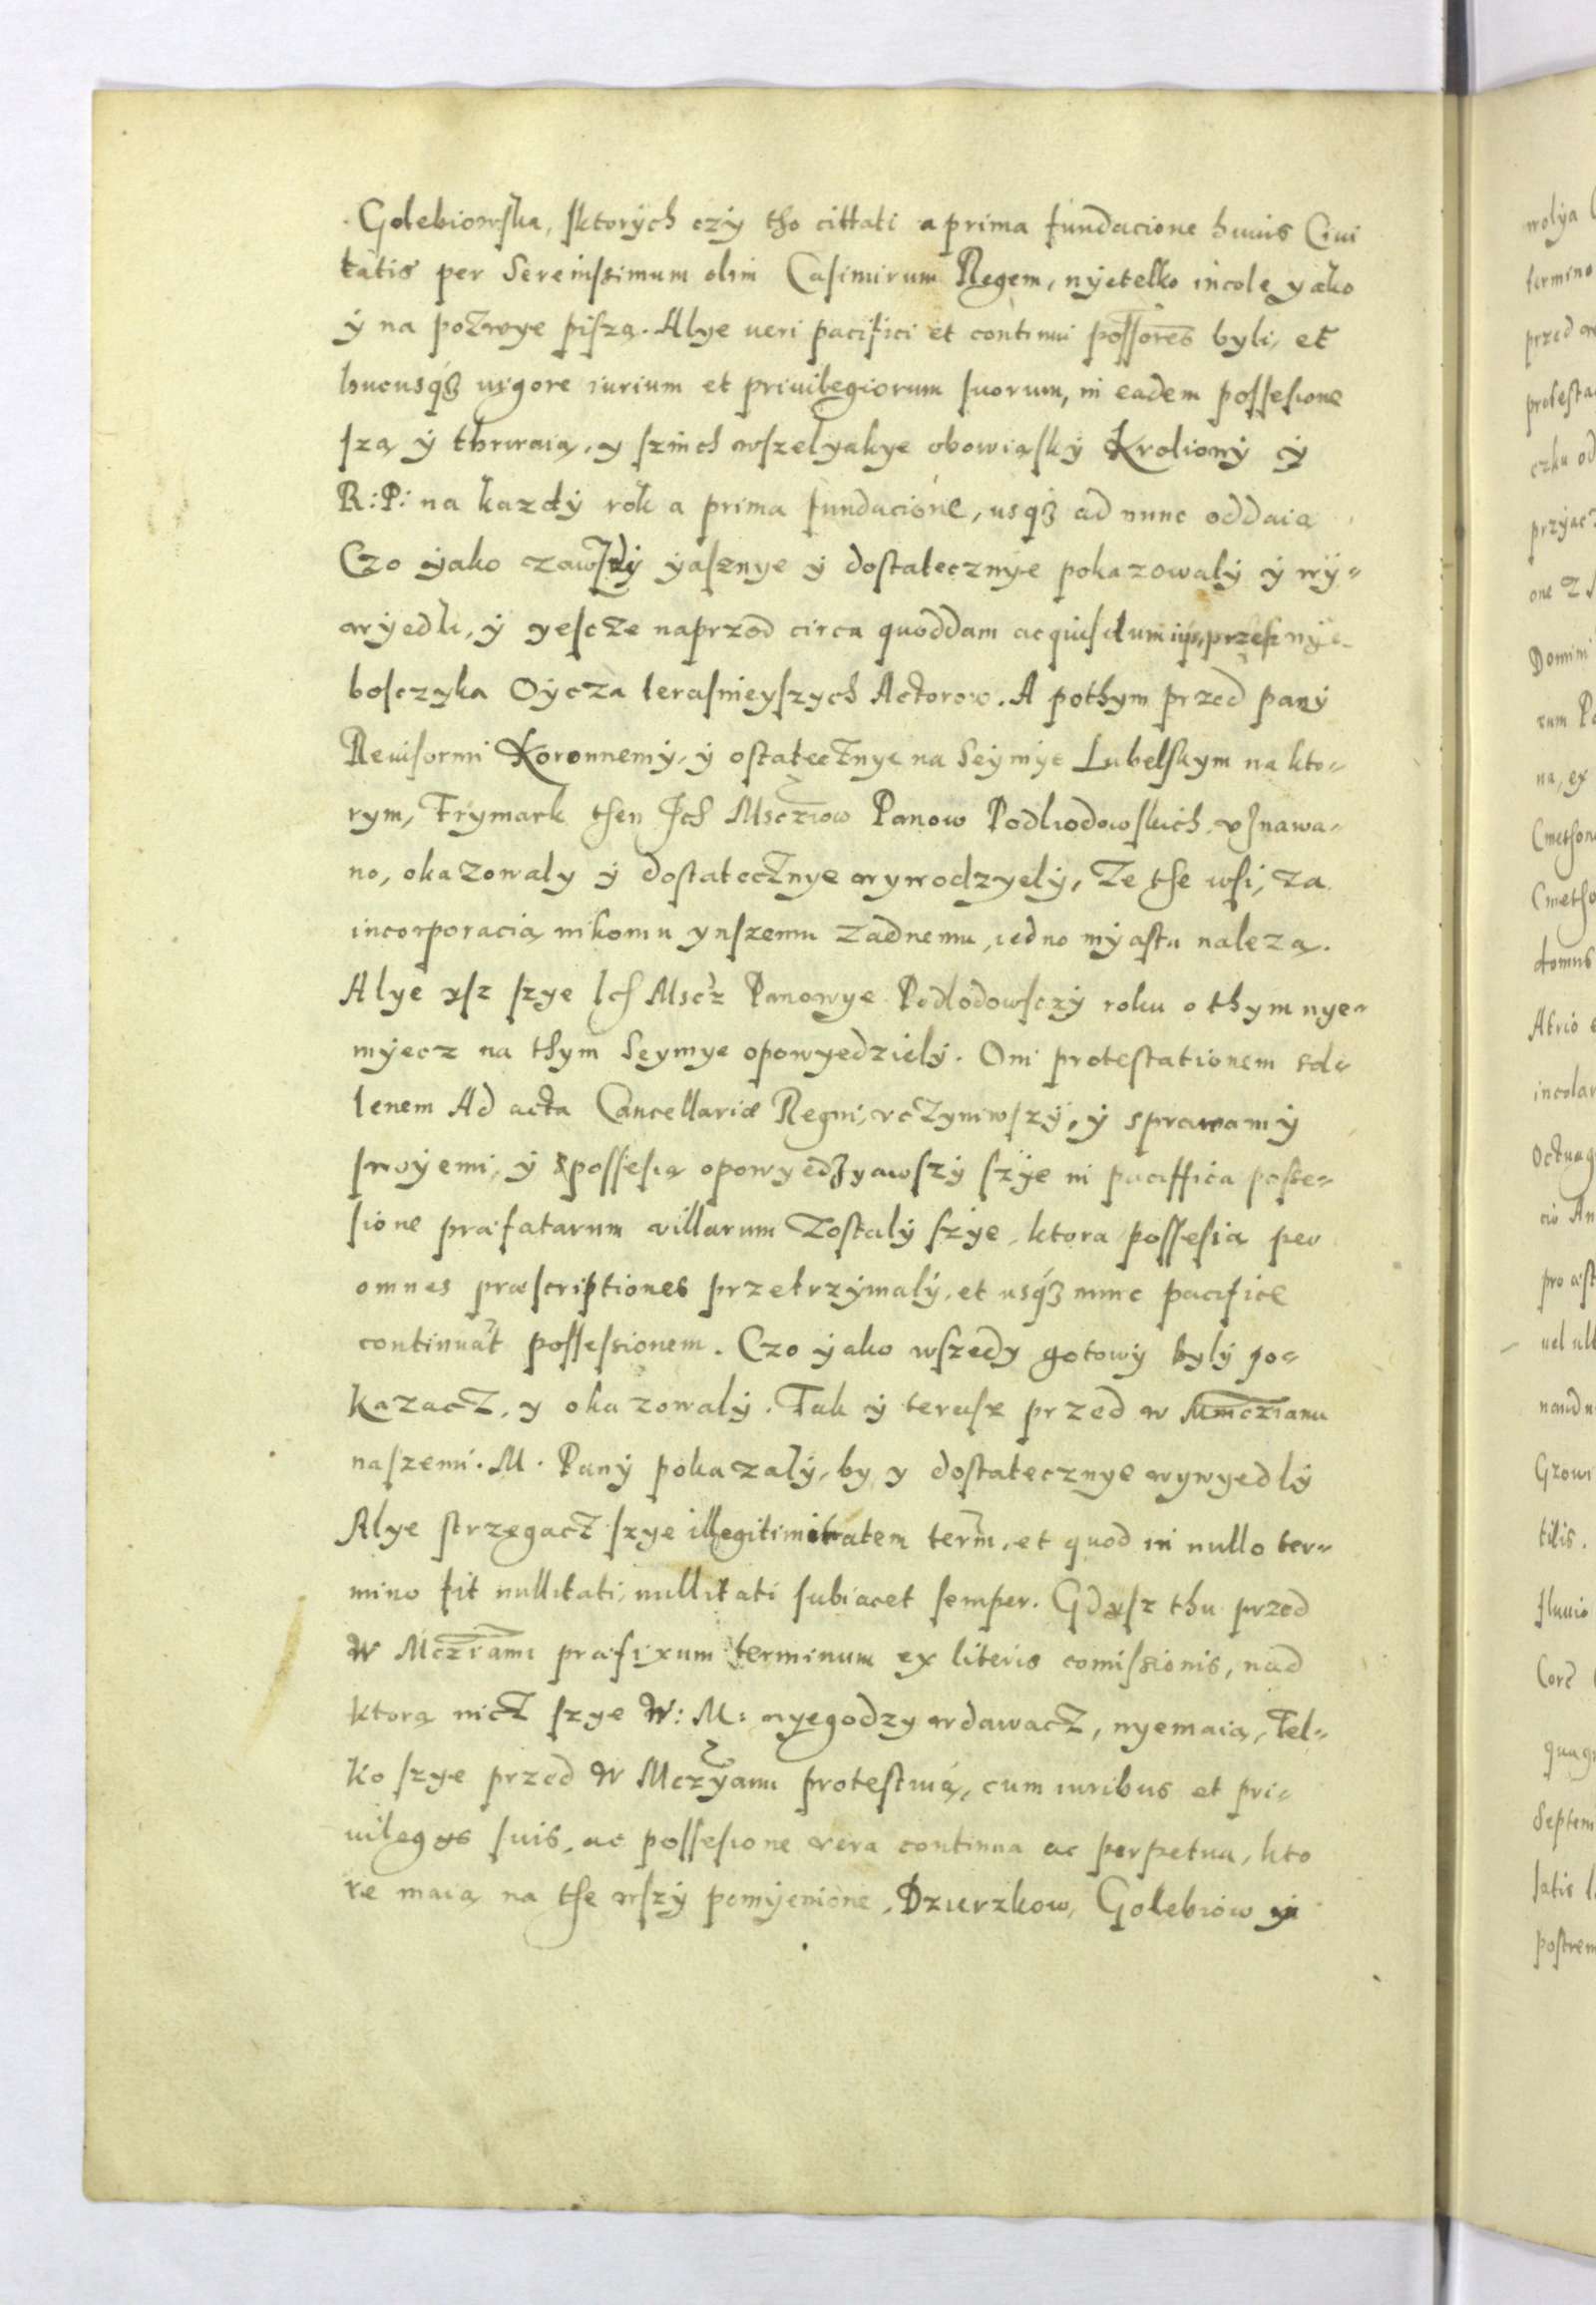 Golebiowska, sktorých czý tho cittati a prima fundacione huius Ciui
tatis per Serenissimum olim Casimirum Regem, nyetelko incole yako
ý na pozwye piszą. Alye ueri pacifici et continui possores byli, et
hucusqʒ uigore iurium et priuilegiorum suorum, in eadem possesione
szą ý thrwaią, y sznich wszelyakye obowiąský Krolioný ý
R: P: na kazdý rok a prima fundacione, usqʒ ad nunc oddaią
Czo ýako czawszdý ýasznye ý dostatecznye pokazowalý ý wý=
wýedli, ý yescze naprzod circa quoddam acquisitum przesz nýe
bosczyka Oýcza terasnieyszych Actorow. A pothym przed paný
Reuisormi Koronnemý, ý ostatecznye na Seýmye Lubelskym na kto=
rym, Frymark then Ich Msczíow Panow Podlodowskich vznawa=
no, okazowaly ý dostatecznye wywodzyelý, ze the wsi, za
incorporacią nikomu ynszemu zadnemu, iedno mýastu nalezą.
Alye ysz szye Ich Mscz Panowye Podlodowsczý roku o thym nye=
mýecz na thym Seymye opowyedzielý. Oni protestationem sole=
lenem Ad acta Cancellariæ Regni, vczyniwszý, ý sprawamý
swoýemi, ý possesią opowyedzyawszý szýe in paciffica posse=
sione præfatarum villarum zostalý szýe, ktora possesią per
omnes præscriptiones przetrzýmalý, et usqʒ nunc pacifice
continuat possessionem. Czo ýako wszedy gotowý bylý po=
kazacz, y okazowalý. Tak ý terasz przed w Mmcziami
naszemi. M. Paný pokazalý, by y dostatecznye wywyedlý
Alye strzegacz szye illegitimitatem term, et quod in nullo ter=
mino fit nullitati, nullitati subiacet semper. Gdysz thu przed
W Mcziami præfixum terminum ex literis comissionis, nad
ktorą nicz szye W: M: nyegodzy wdawacz, nyemaią, Tel=
ko szye przed W Mczyami protestuią, cum iuribus et pri=
uilegys suis, ac possesione vera continua ac perpetua, kto
re maią na the wszý pomýenione, Dzierzkow, Golebiow y